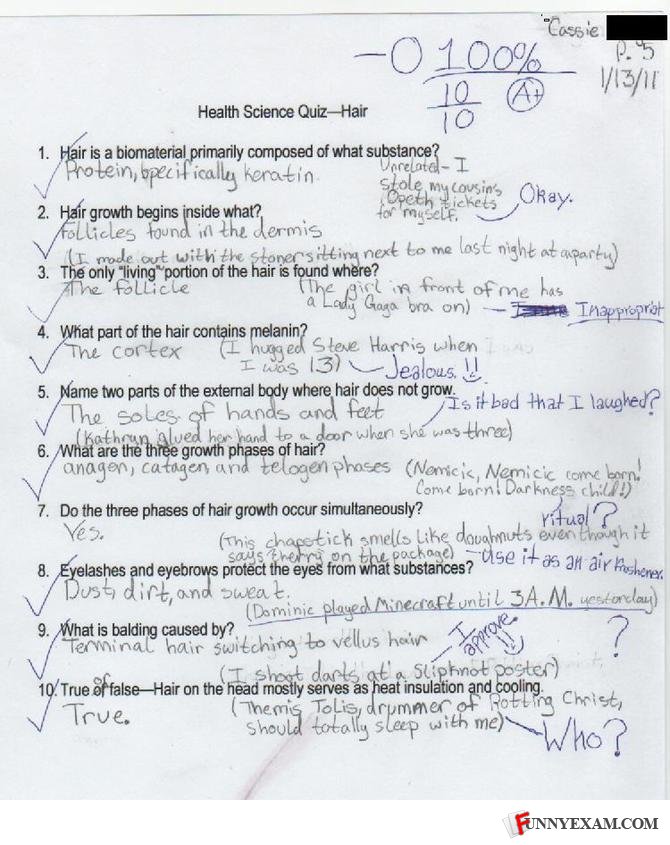 Cassie
P. 5
1/13/11
-0 100%
10
10
A+
Health Science Quiz—Hair
1. Hair is a biomaterial primarily composed of what substance?
Protein, specifically keratin.
Unrelated- I
stole my cousin's
Opeth tickets
for myself.
Okay.
2. Hair growth begins inside what?
Follicles found in the dermis
(I made out with the stoner sitting next to me last night at a party)
3. The only "living" portion of the hair is found where?
The follicle
(The girl in front of me has
a Lady Gaga bra on)
Inappropriat
4. What part of the hair contains melanin?
The cortex
(I hugged Steve Harris when
I was 13)
Jealous.
5. Name two parts of the external body where hair does not grow.
Is it bad that I laughed?
The soles of hands and feet
(Kathryn glued her hand to a door when she was three)
6. What are the three growth phases of hair?
anagen, catagen, and telogen phases (Nemicic, Nemicic come born!
Come born! Darkness child!)
7. Do the three phases of hair growth occur simultaneously?
ritual?
Yes.
(This chapstick smells like doughnuts even though it
says cherry on the package)
-use it as an air freshener.
8. Eyelashes and eyebrows protect the eyes from what substances?
Dust, dirt, and sweat.
(Dominic played Minecraft until 3A.M. yesterday)
I
approve.
9. What is balding caused by?
Terminal hair switching to vellus hair
?
(I shoot darts at a Slipknot poster)
10. True or false—Hair on the head mostly serves as heat insulation and cooling.
True.
(Themis Tolis, drummer of Rotting Christ,
should totally sleep with me)
Who?
FUNNYEXAM.COM